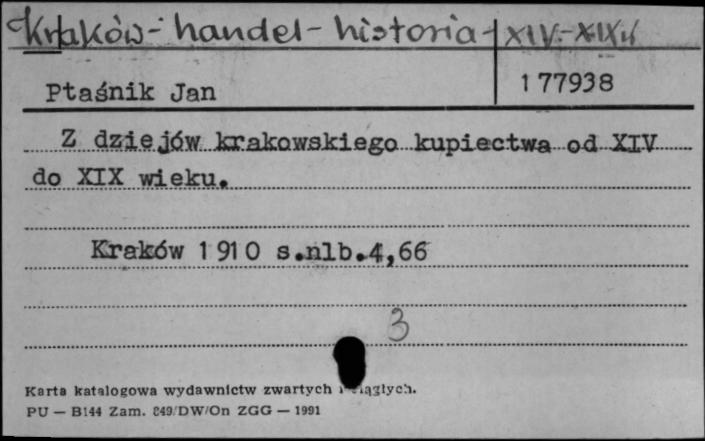 Kraków - handel - historia - XIV-XIXw
Ptaśnik Jan
177938
Z dziejów krakowskiego kupiectwa od XIV
do XIX wieku.
Kraków 1910 s.nlb.4,66
3
Karta katalogowa wydawnictw zwartych i ciągłych.
PU — B144 Zam. 849/DW/On ZGG — 1991